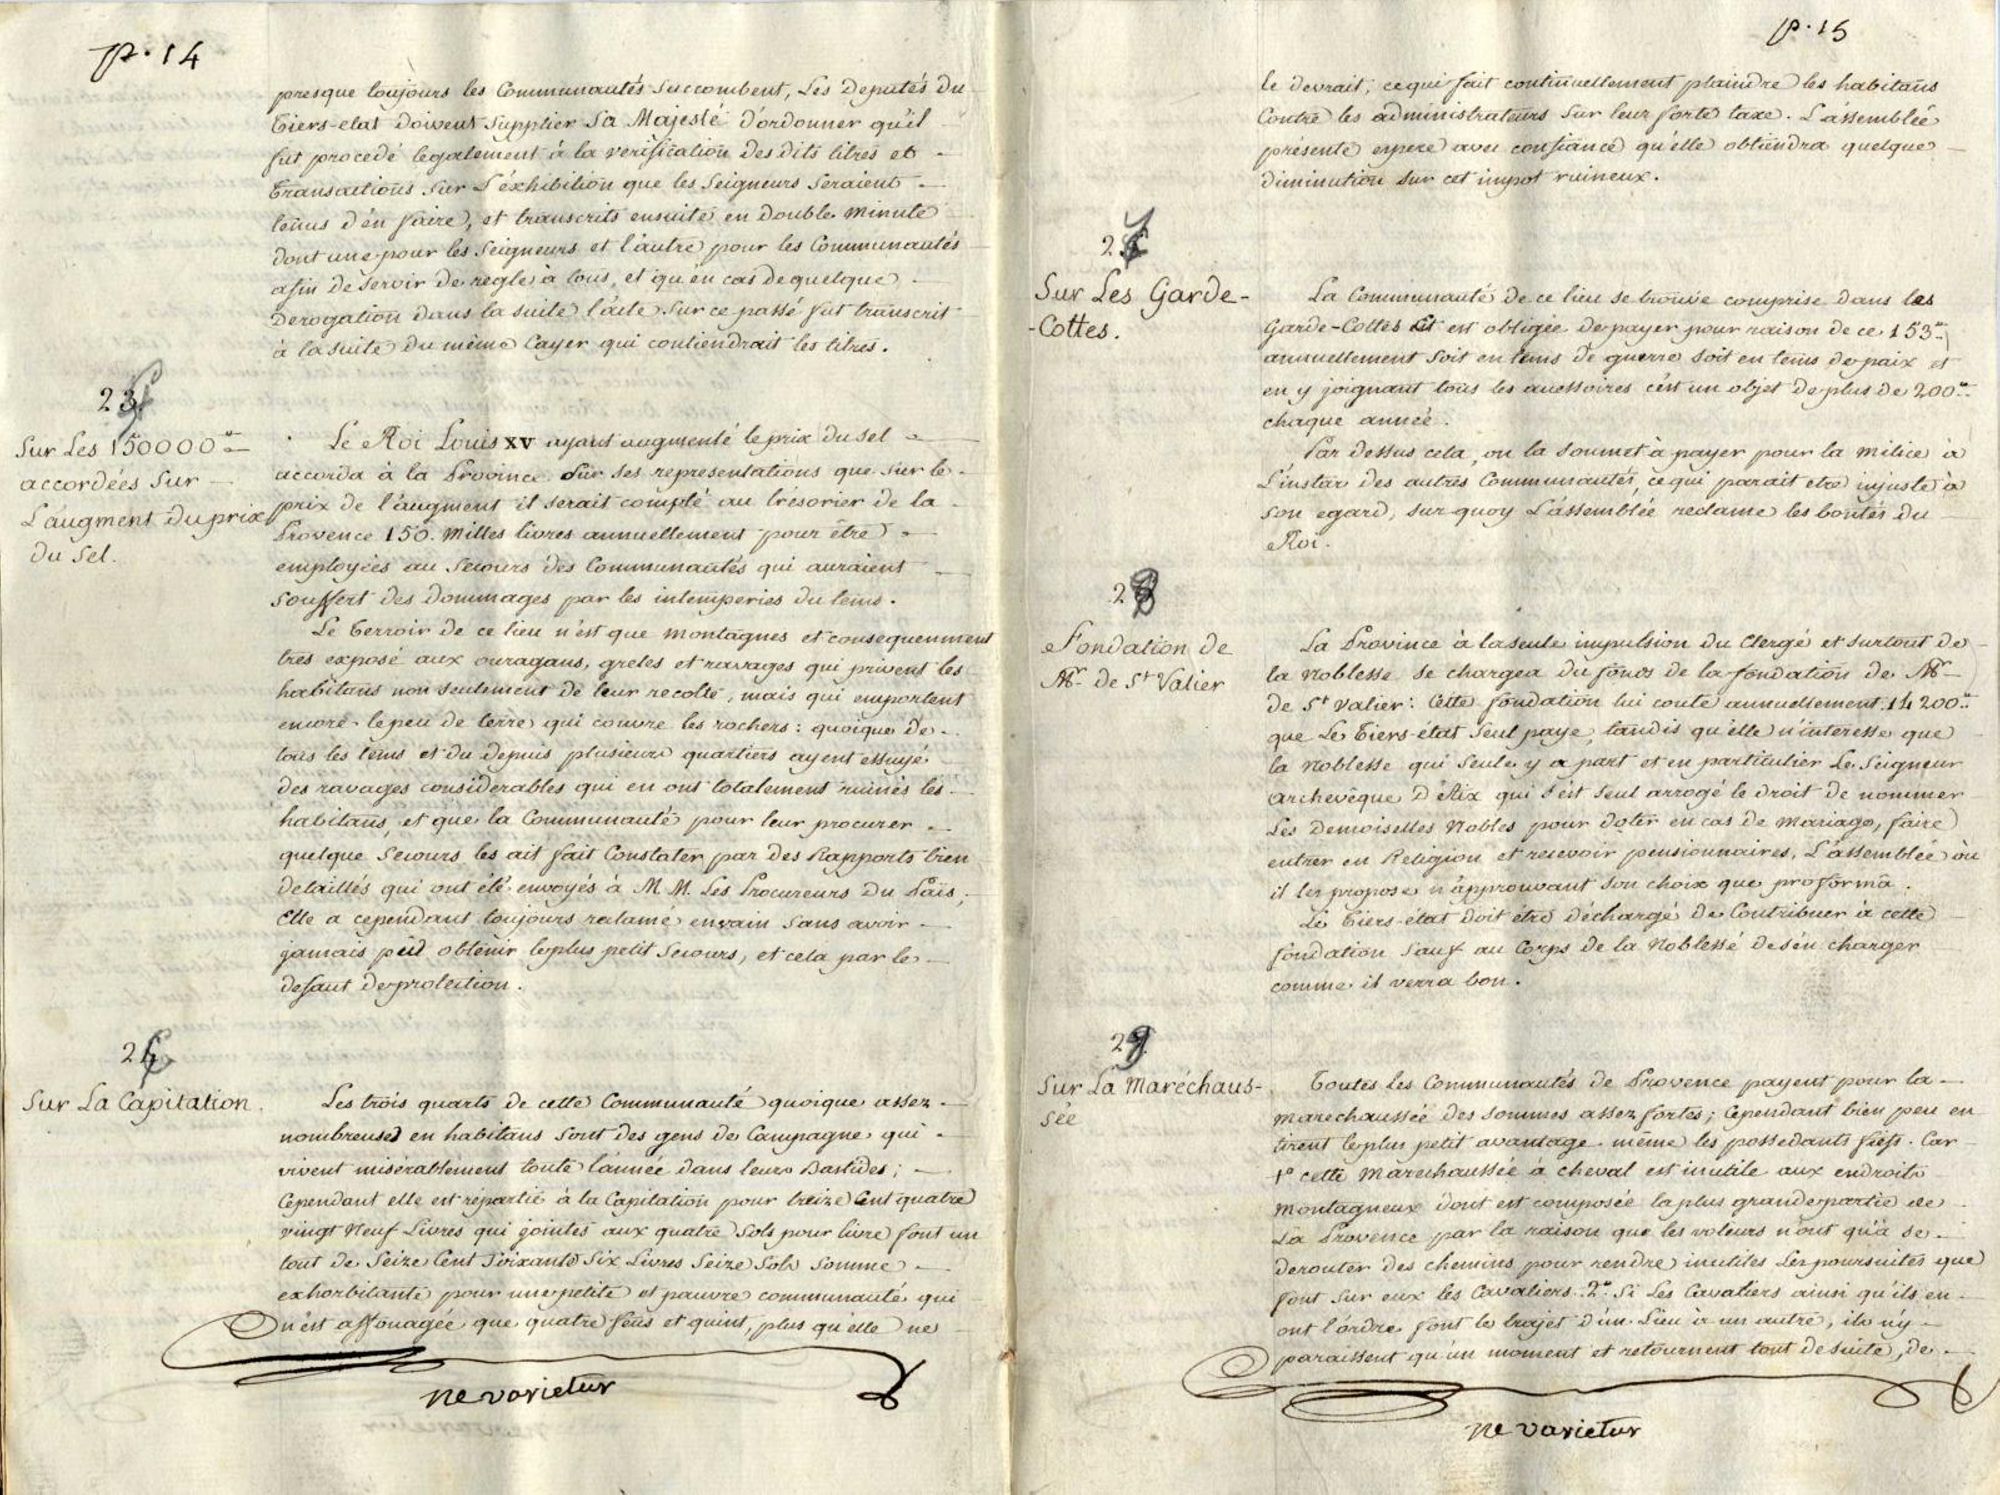 p. 14
presque toujours les Communautés succombent, Les Deputés du
Tiers-etat doivent supplier Sa Majesté d'ordonner qu'il
fut procedé legalement à la verification des dits titres et
Transactions sur L'éxhibition que les Seigneurs seraient
tenus d'en faire, et transcrits ensuite en double minute
dont une pour les Seigneurs et l'autre pour les Communautés
afin de servir de regle à tous, et qu'en cas de quelque
Derogation dans la suite l'acte sur ce passé fut transcrit
à la suite du même Cayer qui contiendrait les titres.
Sur Les 150000 tt
accordées Sur
L'augment du prix
Du Sel.
Le Roi Louis XV ayant augmenté le prix du sel
accorda à la Province sur ses representations que sur le
prix de l'augment il serait compté au trésorier de la
Provence 150. Milles livres annuellement pour être
employées au secours des Communautés qui auraient
souffert des dommages par les intemperies du tems.
Le terroir de ce lieu n'est que montagnes et consequenment
tres exposé aux ouragans, greles et ravages qui privent les
habitans non seulement de leur recolte, mais qui emportent
encore le peu de terre qui couvre les rochers: quoique de
tous les tems et du depuis plusieurs quartiers ayent essuyé
des ravages considerables qui en ont totalement ruinés les
habitans, et que la Communauté pour leur procurer
quelque secours les ait fait Constater par des Rapports bien
detaillés qui ont été envoyés à M.M. Les Procureurs Du Païs,
Elle a cependant toujours reclamé envain sans avoir
jamais pû obtenir le plus petit secours, et cela par le
defaut de protection.
Sur La Capitation.
Les trois quarts de cette Communauté quoique assez
nombreuse en habitans sont des gens de Campagne qui
vivent misérablement toute l'année dans leurs Bastides;
Cependant elle est répartie à la Capitation pour treize Cent quatre
vingt Neuf Livres qui jointes aux quatre sols pour livre font un
tout de Seize Cent Soixante Six Livres Seize Sols somme
exhorbitante pour une petite et pauvre communauté qui
n'est affouagée que quatre feus et quint, plus qu'elle ne
ne varietur
p. 15
le devrait, ce qui fait continuellement plaindre les habitans
Contre les administrateurs sur leur forte taxe. L'assemblée
présente espere avec confiance qu'elle obtiendra quelque
diminution sur cet impot ruineux.
Sur Les Garde-
-Cottes.
La Communauté de ce lieu se trouve comprise dans les
Garde-Cottes et est obligée de payer pour raison de ce 153 tt
annuellement soit en tems de guerre soit en tems de paix et
en y joignant tous les accessoires c'est un objet de plus de 200 tt
chaque année.
Par dessus cela, on la soumet à payer pour la milice à
L'instar des autres Communautés, ce qui parait etre injuste à
son egard, sur quoy L'assemblée reclame les bontés du
Roi.
Fondation de
Mr. de St Valier
La Province à la seule impulsion du Clergé et surtout de
la Noblesse se chargea du fonds de la fondation de Mr
de St Valier: Cette fondation lui coute annuellement 14200 tt
que Le Tiers-état Seul paye, tandis qu'elle n'interesse que
la Noblesse qui seule y a part et en particulier Le Seigneur
Archevêque D'Aix qui s'est seul arrogé le droit de nommer
Les Demoiselles Nobles pour doter en cas de Mariage, faire
entrer en Religion et recevoir pensionnaires, L'assemblée où
il les propose n'approuvant son choix que proforma.
Le Tiers-état doit être déchargé de Contribuer à cette
fondation sauf au Corps de la Noblesse de s'en charger
comme il verra bon.
Sur La Maréchaus-
sée
Toutes Les Communautés de Provence payent pour la
Marechaussée des sommes assez fortes; Cependant bien peu en
tirent le plus petit avantage même les possedants fiefs. Car
1° cette Marechaussée à cheval est inutile aux endroits
Montagneux dont est composée la plus grande partie de
La Provence par la raison que les voleurs n'ont qu'à se
derouter des chemins pour rendre inutiles Les poursuites que
font sur eux les Cavaliers. 2° Si Les Cavaliers ainsi qu'ils en
ont l'ordre font le trajet d'un Lieu à un autre, ils n'y
paraissent qu'un moment et retournent tout de suite, de
ne varietur